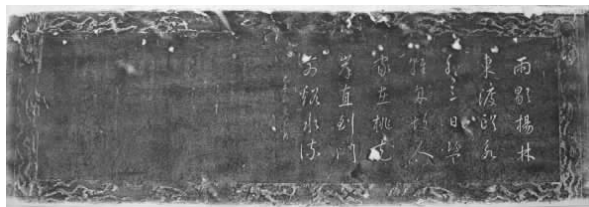 雨歇揚林
東渡頭永
和三日盪
輕舟故人
家在桃花
岸直到門
前谿水流